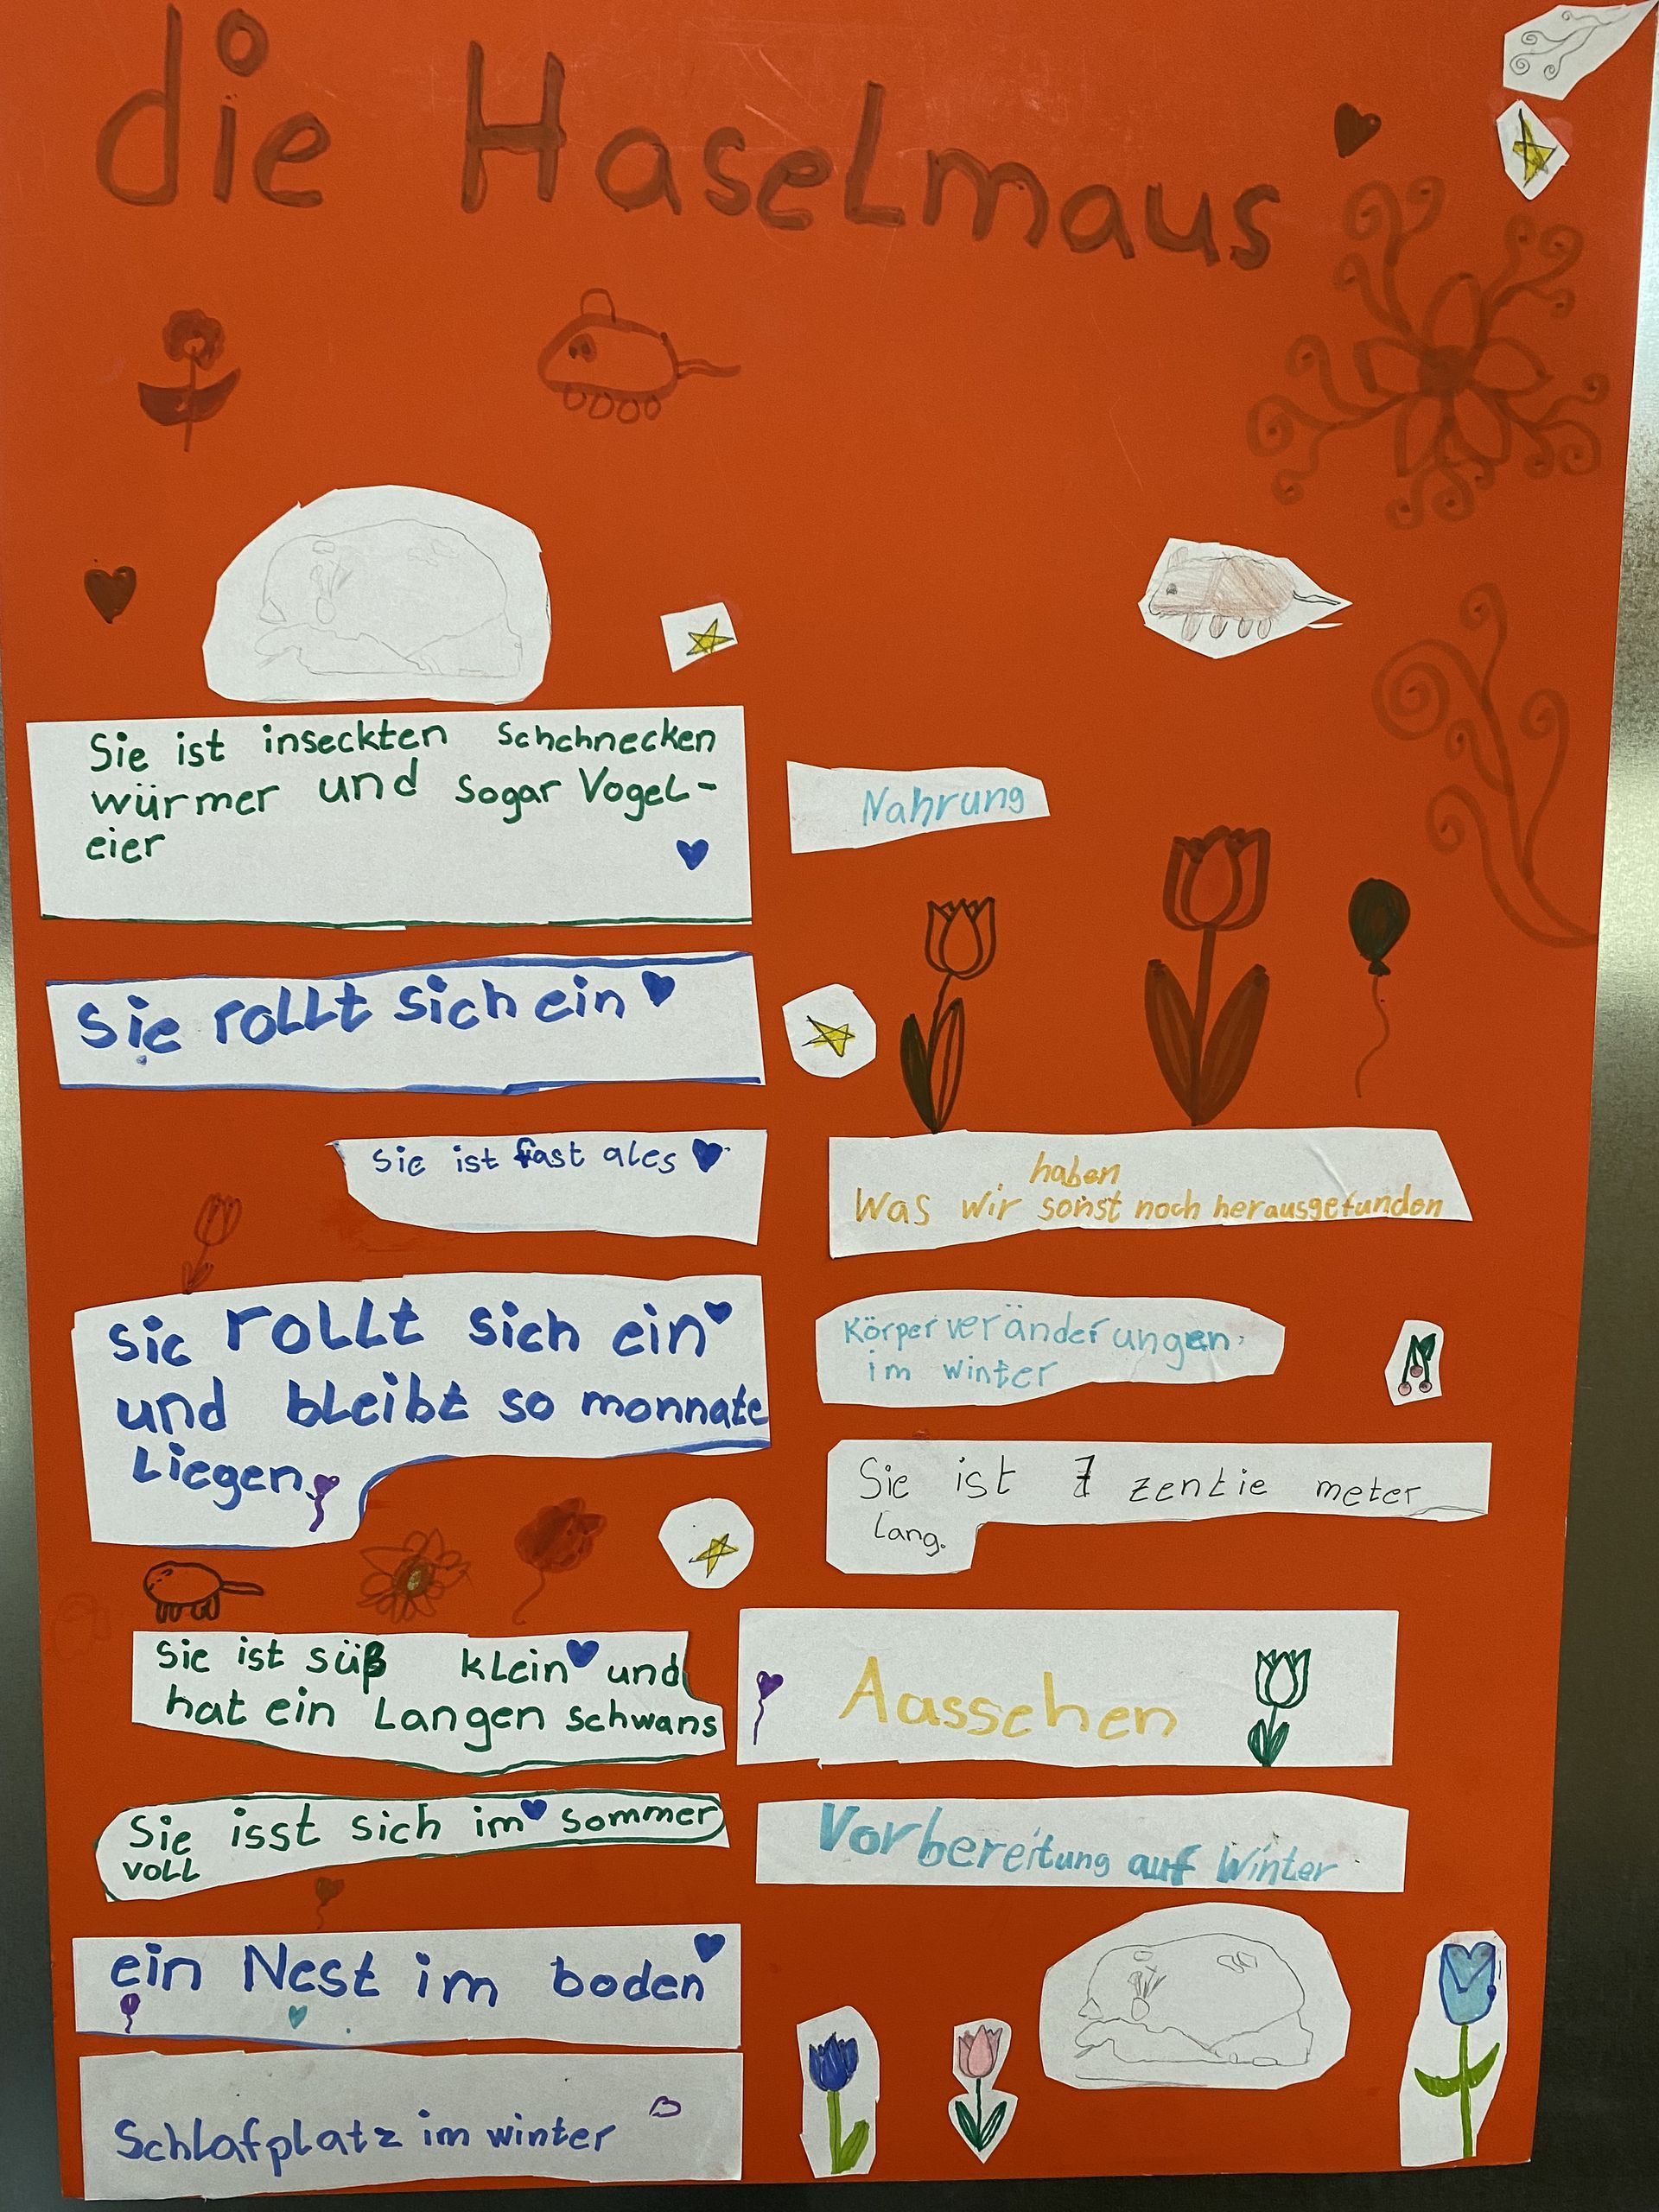 die Haselmaus
Sie ist inseckten Schchnecken
würmer und sogar Vogel-
eier
Nahrung
Sie rollt sich ein
Sie ist fast ales
haben
Was wir sonst noch herausgefunden
Sie rollt sich ein
und bleibt so monnate
Liegen
Körperveränderungen
im winter
Sie ist 7 zentie meter
lang.
Sie ist süß klein und
hat ein Langen schwans
Aassehen
Sie isst sich im sommer
voll
Vorbereitung auf Winter
ein Nest im boden
Schlafplatz im winter